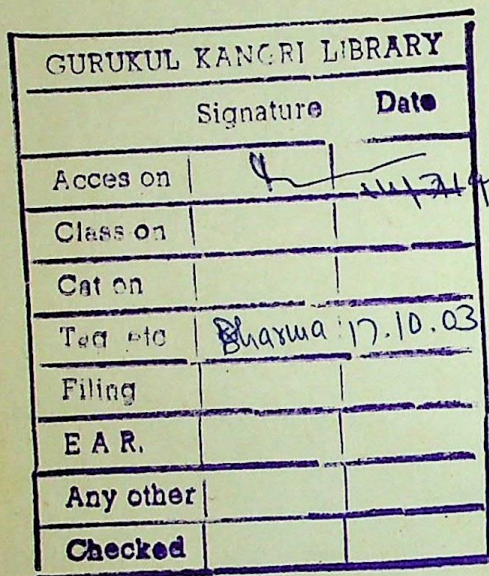 GURUKUL KANGRI LIBRARY
Signature Date
Acces on
Class on
Cat on
Tag etc Bharma 17.10.03
Filing
E A R.
Any other
Checked